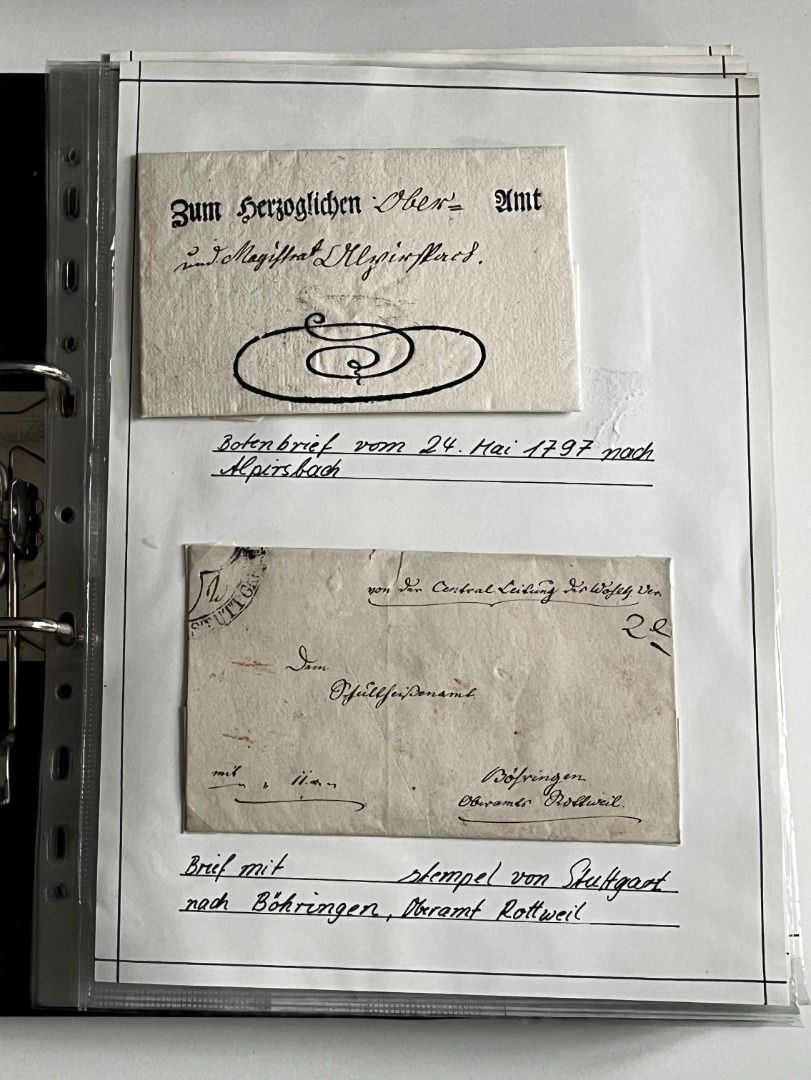 Zum Herzoglichen Ober= Amt
und Magistrat Alpirspach.
Botenbrief vom 24. Mai 1797 nach
Alpirsbach
STUTTG
von der Central Leitung des Wohlth Ver
Dem
Schultheißenamt
mit
Böhringen
Oberamts Rottweil.
Brief mit stempel von Stuttgart
nach Böhringen, Oberamt Rottweil